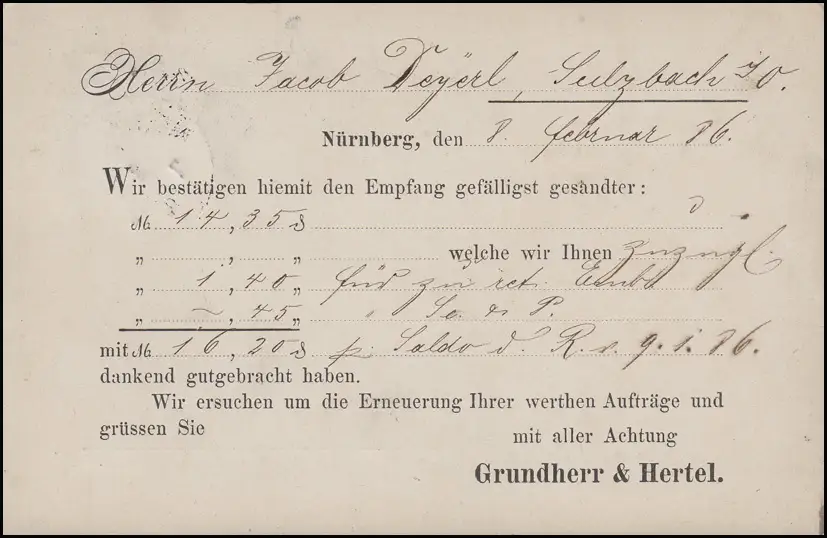 Herrn Jacob Deyerl, Sulzbach i/O.
Nürnberg, den 8. Februar 86.
Wir bestätigen hiemit den Empfang gefälligst gesandter:
M. 14,35 ₰
„ , „ welche wir Ihnen zuzügl.
„ 1,40 „ für zu ret. Emb.
„ ~,45 „ " Sc. & P.
mit M. 16,20 ₰ p. Saldo d. R. v. 9.1.86.
dankend gutgebracht haben.
Wir ersuchen um die Erneuerung Ihrer werthen Aufträge und
grüssen Sie
mit aller Achtung
Grundherr & Hertel.